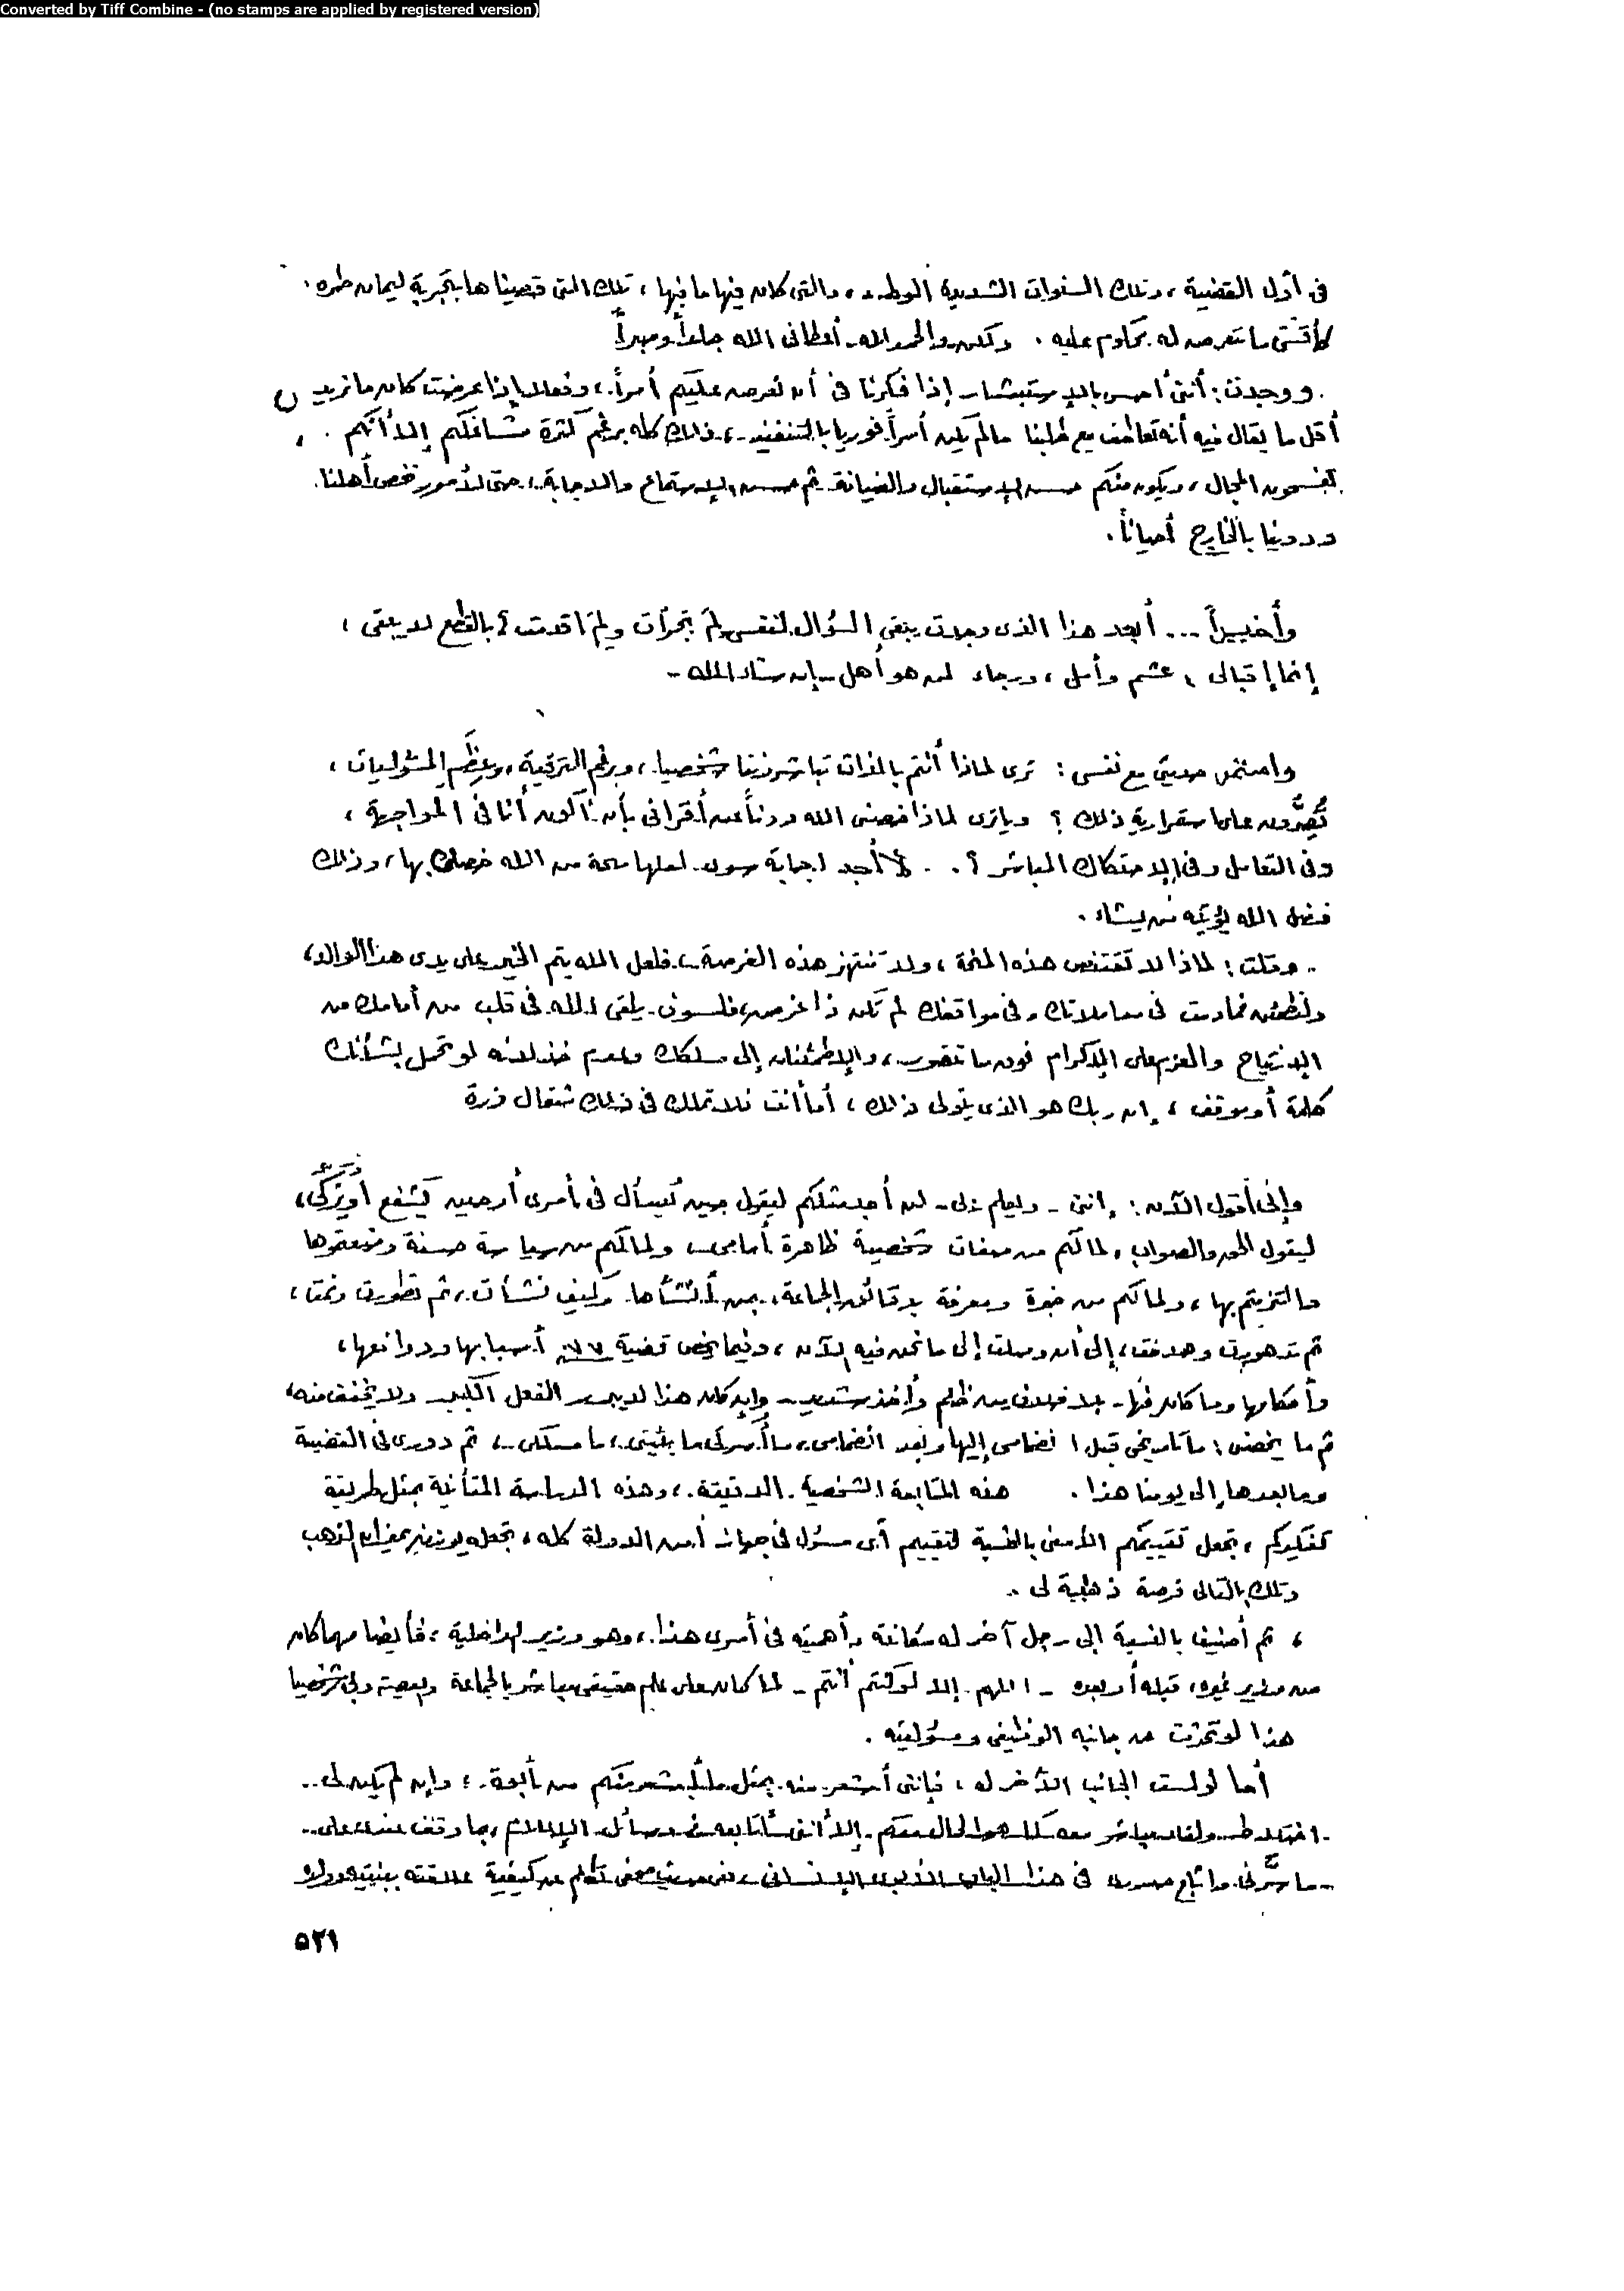 Converted by Tiff Combine - (no stamps are applied by registered version)
فى أول القضية ، وتلك السنوات الشديدة الوطء ، والتى كان فيها ما فيها ، تلك التى قضيناها بتجربة ليمان طره .
كأقسى ما تعرض له محكوم عليه . ولكن والحمد لله - أعطانى الله جلداً وصبراً
. ووجدت : أننى أحس بالاستبشار - إذا فكرنا فى أن نعرض عليكم أمراً ، وفعلاً إذا عرضت كان ما نريد
أقل ما يقال فيه أنه تعاطف مع طلبنا ما لم يكن أمراً فوريا بالتنفيذ - ، ذلك كله برغم كثرة مشاغلكم إلا أنكم .
تفسحون المجال ، ويكون منكم حسن الاستقبال والضيافة ثم حسن الاستماع والاجابة ، حتى لأمور تخص أهلنا .
وذوينا بالخارج أحياناً .
وأخيراً ... أبعد هذا الذى وجدت يبقى السؤال لنفسى لِمَ تجرأت ولِمَ أقدمت ؟ بالقطع لا يبقى ،
إنما إقبالى عشم وأمل ، ورجاء لمن هو أهل - إن شاء الله -
حديثى مع نفسى : ترى لماذا أنتم بالذات تباشروننا شخصيا ، وبرغم الترقية ، وعِظَم المسئوليات ،
تُصِرُّون على استمرارية ذلك ؟ وياترى لماذا خصنى الله دوناً عن أقرانى بأن أكون أنا فى المواجهة ،
وفى التعامل وفى الاحتكاك المباشر ؟ . . لا أجد اجابة سوى لعلها منحة من الله خصنى بها ، وذلك
فضل الله يؤتيه من يشاء .
.. وقلت : لماذا لا تقتنص هذه المنحة ، ولا تنتهز هذه الفرصة ، فلعل الله يتم الخير على يدى هذا الوالد ،
ولتطمئن فمادمت فى معاملاتك وفى مواقفك لم تكن ذا غرض فلسوف يلقى الله فى قلب من أمامك من
الارتياح والعزم على الاكرام فوق ما تتصور ، والاطمئنان إلى مسلكك وعدم خذلانه لو تحمل بشأنك
كلمة أو موقف ، إن ربك هو الذى يتولى ذلك ، أما أنت فلا تملك فى ذلك مثقال ذرة
وإنى أقول الآن : إننى - وليعلم ربى - لن أجد مثلكم ليقول حين يُسأل فى أمرى أو حين يشفع أو يزكى ،
ليقول الحق والصواب ، لما لكم من صفات شخصية ظاهرة أمامى ، ولما لكم من سياسة حسنة
والتزمتم بها ، ولما لكم من خبرة ومعرفة بدقائق الجماعة ، بمن أنشأها وكيف نشأت ، ثم تطورت ونمت ،
ثم تدهورت ، إلى أن وصلت إلى ما نحن فيه الآن ، وفيما يخص قضية ٧٧ أسبابها ودوافعها ،
وأحكامها وما كان فيها - بلا خلاف من ظلم وأخذ شديد - وإن كان هذا لا يبرر الفعل ولا يخفف منه ،
ثم ما يخصنى : ما تاريخى قبل انضمامى إليها وبعد انضمامى ، ما أسرتى ما بيئتى ، ما مسلكى ، ثم دورى فى القضية
وما بعدها إلى يومنا هذا . هذه المتابعة الشخصية الدقيقة ، وهذه الدراسة المتأنية بمثل طريقة
تفكيركم ، تجعل تقييمكم الأمنى بالنسبة لتقييم أى مسئول فى جهات أمن الدولة كله ، تجعله يوزن بميزان الذهب
وتلك بالتالى فرصة ذهبية لى ..
، ثم أضيف بالنسبة إلى رجل آخر له مكانته وأهميته فى أمرى هذا ، وهو وزير الداخلية ، فأيضا مهما كان
من وزير غيره قبله أو بعده - اللهم إلا لو كنتم أنتم - لما كان على علم حقيقى مباشر بالجماعة وبقضية وبى شخصيا
هذا لو تحدثت عن جانبه الوظيفى ومسئوليته .
أما لو لمست الجانب الآخر له ، فإننى أستشعر منه بمثل ما أستشعر منكم من أبوة ، وإن لم يكن لى ..
اختلاط ولقاء مباشر معه كما هو الحال معكم . إلا أننى أتابعه فى وسائل الإعلام ، بما وقف عندى على ..
.. ما سرَّنى وأثلج صدرى فى هذا الجانب الأبوى الإنسانى ، ففى حديث صحفى تكلم عن كيفية علاقته ببنتيه وولده
٥٢١